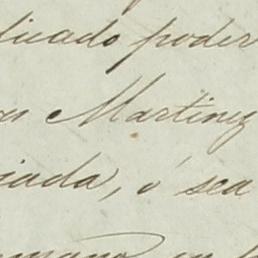 licado poder
Martinez
iada, ó sea